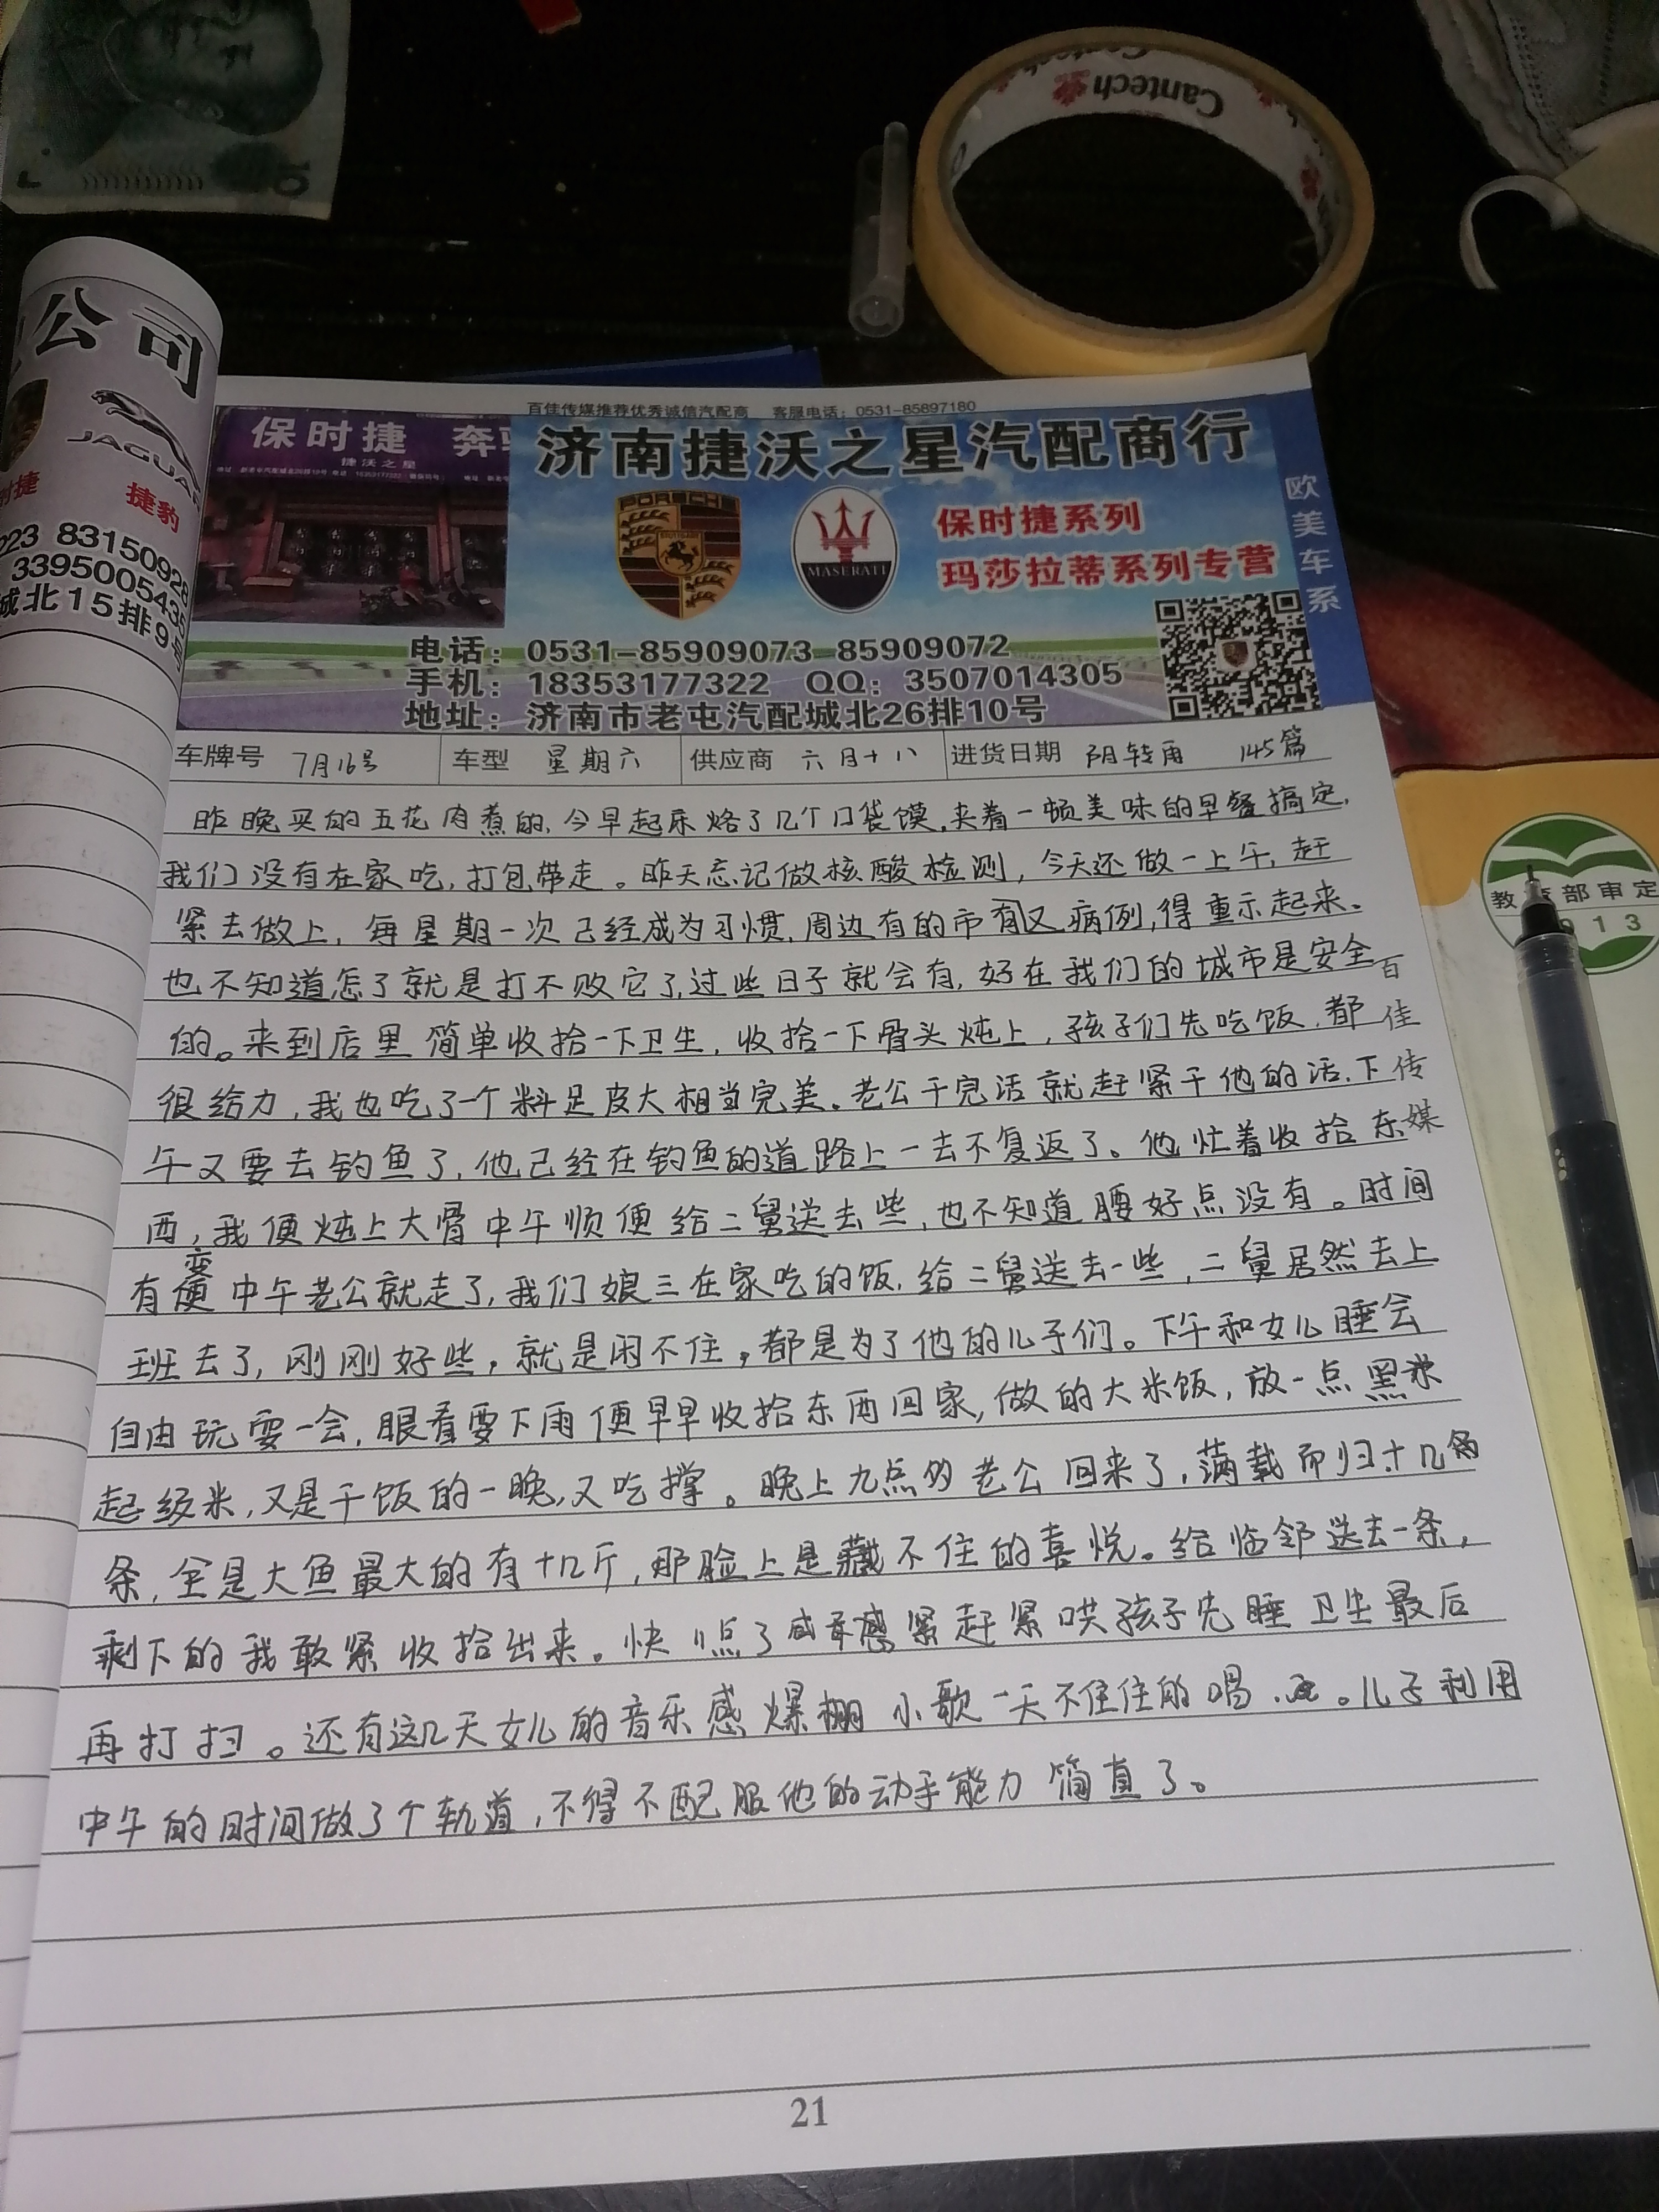 Cantech
公司
JAGUA
时捷 捷豹
223 83150928
3395005435
城北15排9号
百佳传媒推荐优秀诚信汽配商 客服电话：0531-85897180
保时捷 奔
捷沃之星
济南捷沃之星汽配商行
PORSCHE
MASERATI
保时捷系列
玛莎拉蒂系列专营
欧美车系
电话：0531-85909073 85909072
手机：18353177322 QQ：3507014305
地址：济南市老屯汽配城北26排10号
车牌号 7月16号 车型 星期六 供应商 六月十八 进货日期 阴转雨 145篇
昨晚买的五花肉煮的，今早起床烙了几个口袋馍，夹着一顿美味的早餐搞定，
我们没有在家吃，打包带走。昨天忘记做核酸检测，今天还做一上午，赶
紧去做上，每星期一次已经成为习惯，周边有的市有又病例，得重示起来。
也不知道怎了就是打不败它了，过些日子就会有，好在我们的城市是安全
的。来到店里简单收拾一下卫生，收拾一下骨头炖上，孩子们先吃饭，都
很给力，我也吃了一个料足皮大相当完美。老公干完活就赶紧干他的活，下
午又要去钓鱼了，他已经在钓鱼的道路上一去不复返了。他忙着收拾东
西，我便炖上大骨中午顺便给二舅送去些，也不知道腰好点没有。时间
有变中午老公就走了，我们娘三在家吃的饭，给二舅送去一些，二舅居然去上
班去了，刚刚好些，就是闲不住，都是为了他的儿子们。下午和女儿睡会
自由玩耍一会，眼看要下雨便早早收拾东西回家，做的大米饭，放一点黑米
起级米，又是干饭的一晚，又吃撑。晚上九点多老公回来了，满载而归十几条
条，全是大鱼最大的有十几斤，那脸上是藏不住的喜悦。给临邻送去一条，
剩下的我敢紧收拾出来。快11点了 感紧赶紧哄孩子先睡卫生最后
再打扫。还有这几天女儿的音乐感爆棚小歌一天不住住的唱。儿子利用
中午的时间做了个轨道，不得不配服他的动手能力简直了。
百佳传媒
21
教育部审定
2013